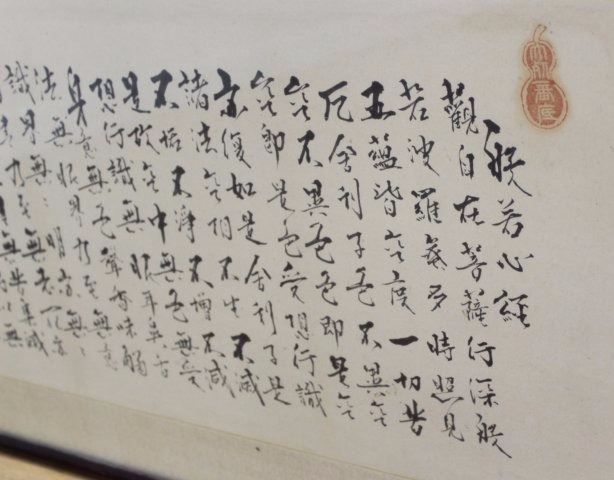 般若心經
觀自在菩薩行深般
若波羅蜜多時照見
五蘊皆空度一切苦
厄舍利子色不異空
空不異色色即是空
空即是色受想行識
亦復如是舍利子是
諸法空相不生不滅
不垢不淨不增不減
是故空中無色無受
想行識無眼耳鼻舌
身意無色聲香味觸
法無眼界乃至無意
識界無〻明亦無〻